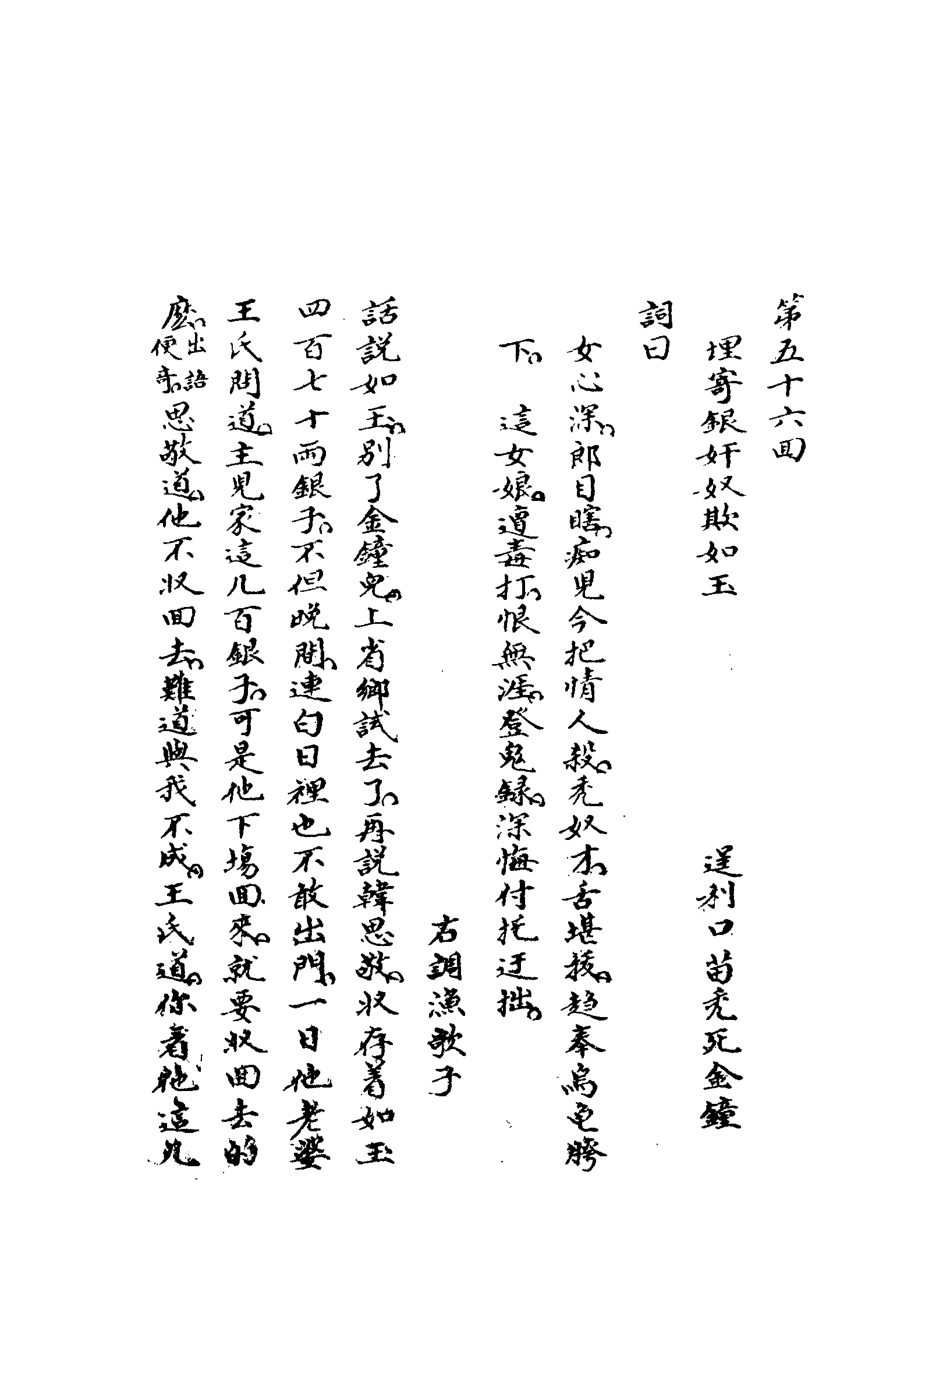 第五十六回
埋寄銀奸奴欺如玉　逞利口苗禿死金鐘
詞曰
女心深、郎目瞎、痴児今把情人殺、禿奴才、舌堪拔、趋奉烏龟胯
下、這女娘、遭毒打、恨無涯、登鬼録、深悔付托迂拙、
右調漁歌子
話説如玉、别了金鐘児、上省鄉試去了、再説韓思敬、収存着如玉
四百七十両銀子、不但晚間、連白日裡也不敢出門、一日他老婆
王氏問道、主児家這几百銀子、可是他下塲回來、就要収回去的
麽、出語便奇、思敬道、他不収回去、難道與我不成、王氏道、你看他這几